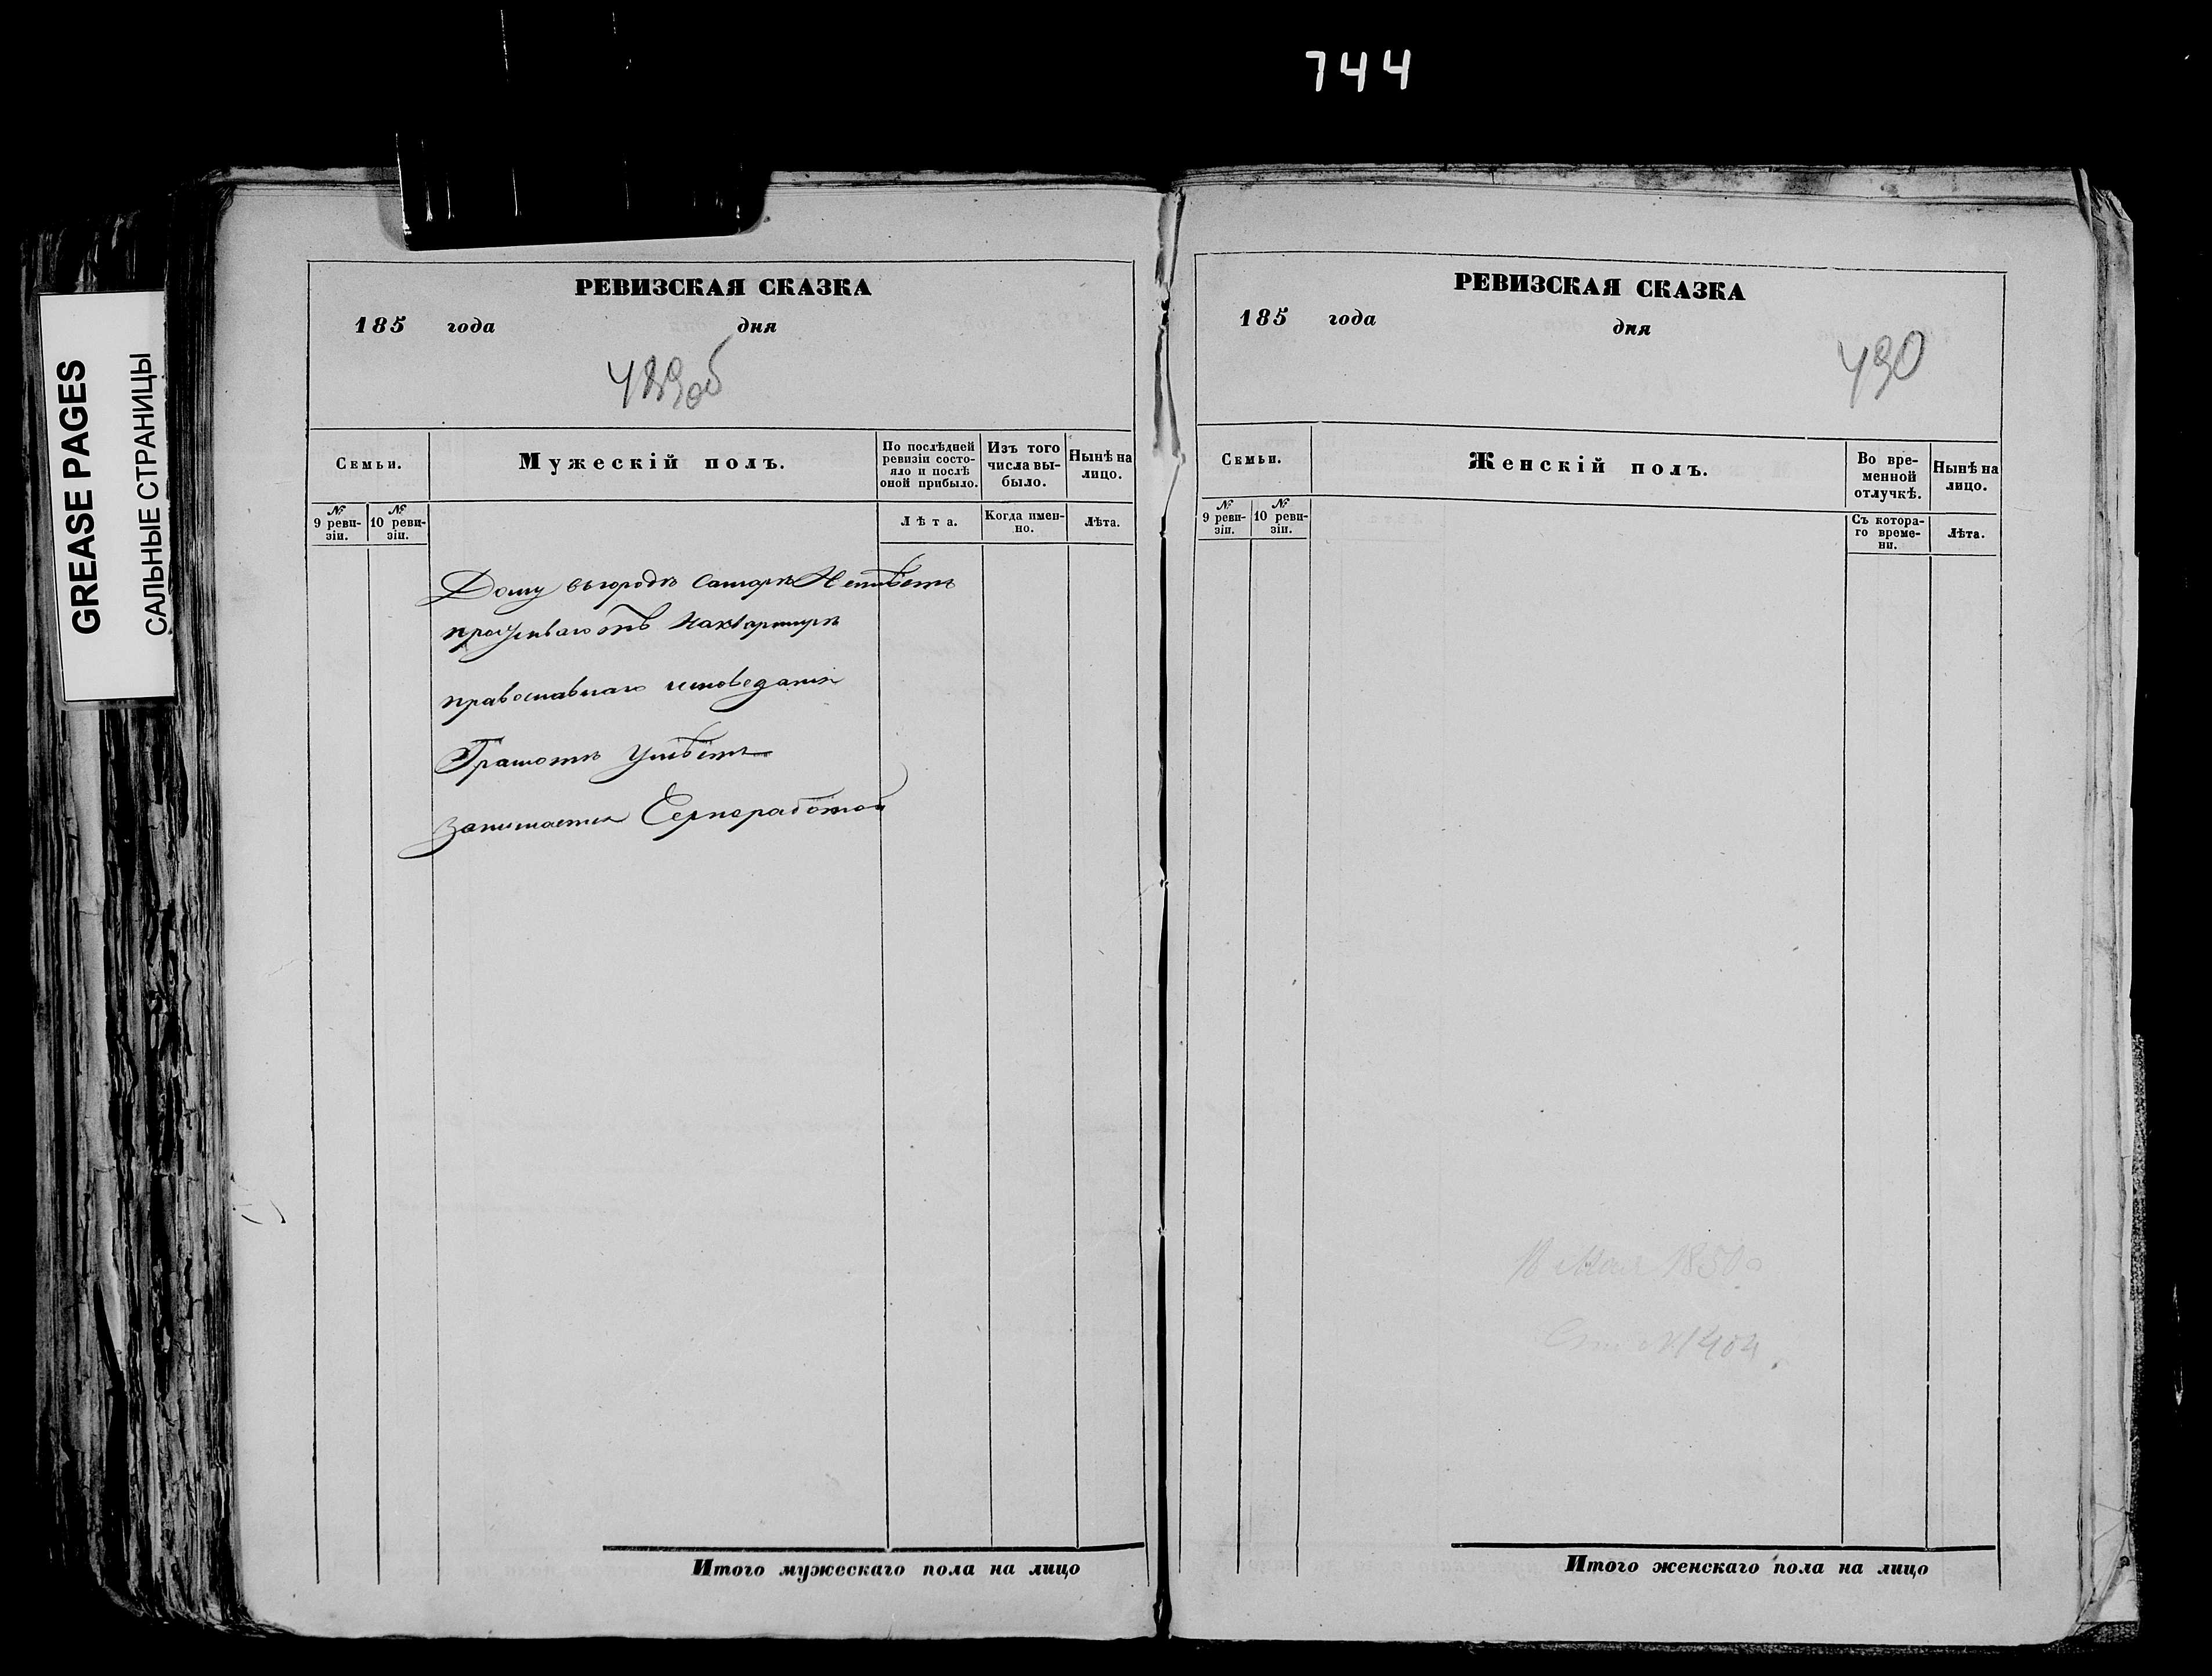 744
GREASE PAGES
САЛЬНЫЕ СТРАНИЦЫ
РЕВИЗСКАЯ СКАЗКА
185 года дня
489об
Семьи.
Мужескій полъ.
По послѣдней ревизіи состо-
яло и послѣ
оной прибыло.
Изъ того
числа вы-
было.
Нынѣ на
лицо.
№ 9 реви-
зіи.
№ 10 реви-
зіи.
Лѣта.
Когда имен-
но.
Лѣта.
Дому въ городѣ Самарѣ Неимѣетъ
проживаютъ на квартирѣ
православнаго исповеданія
Грамотѣ умѣетъ
занимается Чернеработой
Итого мужескаго пола на лицо
РЕВИЗСКАЯ СКАЗКА
185 года дня
490
Семьи.
Женскій полъ.
Во вре-
менной
отлучкѣ.
Нынѣ на
лицо.
№ 9 реви-
зіи.
№ 10 реви-
зіи.
Съ котора-
го време-
ни.
Лѣта.
Мая 1850
Итого женскаго пола на лицо